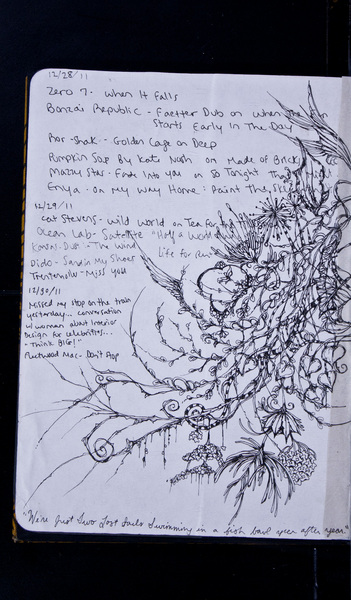 12/28/11
Zero 7 - When It Falls
Bonzai Republic - Faetter Dub on When The
Starts Early In The Day
Ror-Shak - Golden Cage on Deep
Pumpkin Soup By Kate Nash on Made of Bricks
Mazzy Star - Fade Into you on So Tonight That I Might
Enya - On My Way Home: Paint The Sky
12/29/11
Cat Stevens - Wild World on Tea For the
Ocean Lab - Satellite "Half a World
"The Wind Life for Rent
Dido - Sand in My Shoes
Trentemoller - Miss You
12/30/11
Missed my stop on the train
yesterday... conversation
w/ woman about interior
design for celebrities...
"Think BIG!"
Fleetwood Mac - Don't Stop
"We're Just Two Lost Souls Swimming in a fish bowl year after year"